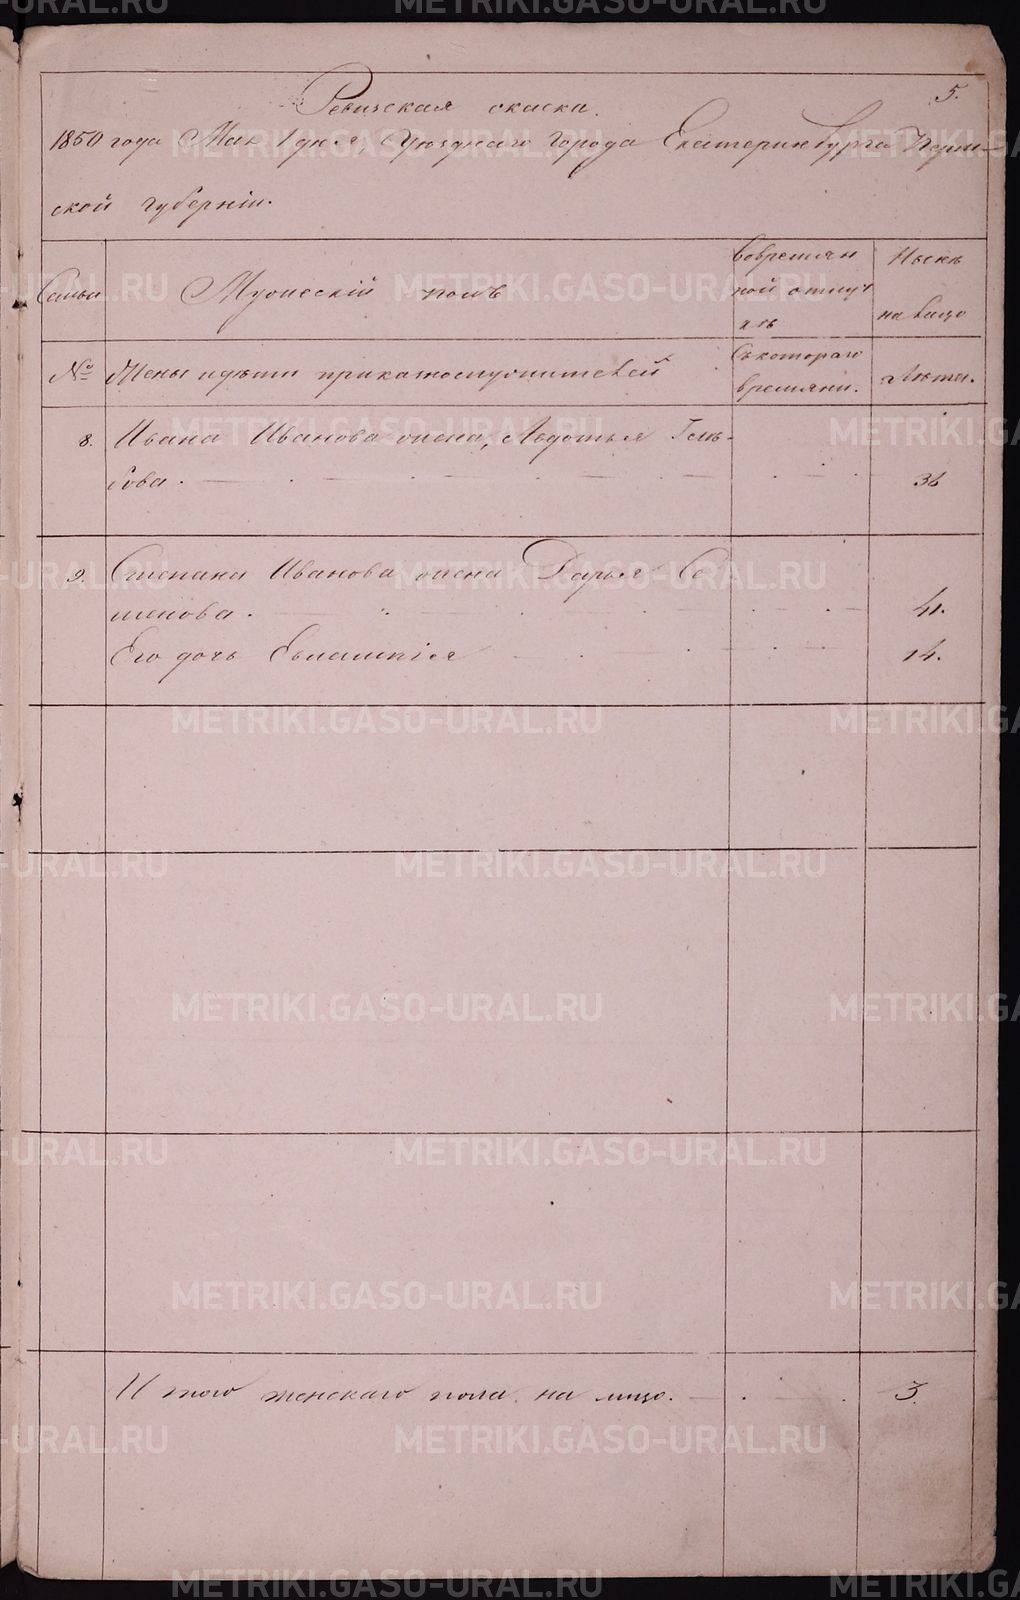 5.
Ревизская скаска.
1850 года Мая 1 дня, Уюзднаго города Екатеринбурга Перм-
ской губернiи.
Семьи
Мужескiй полъ
Вовремян
ной отлуч
кѣ
Нынѣ
на лицо
№
Жены идѣти приказнослужителей
Съкотораго
времяни.
Лѣта.
8.
Ивана Иванова жена, Авдотья Глѣ-
бова.
36
9.
Степана Иванова жена Дарья Се
менова.
41.
Его дочь Евлампiя
14.
Итого женскаго пола на лицо.
3.
METRIKI.GASO-URAL.RU